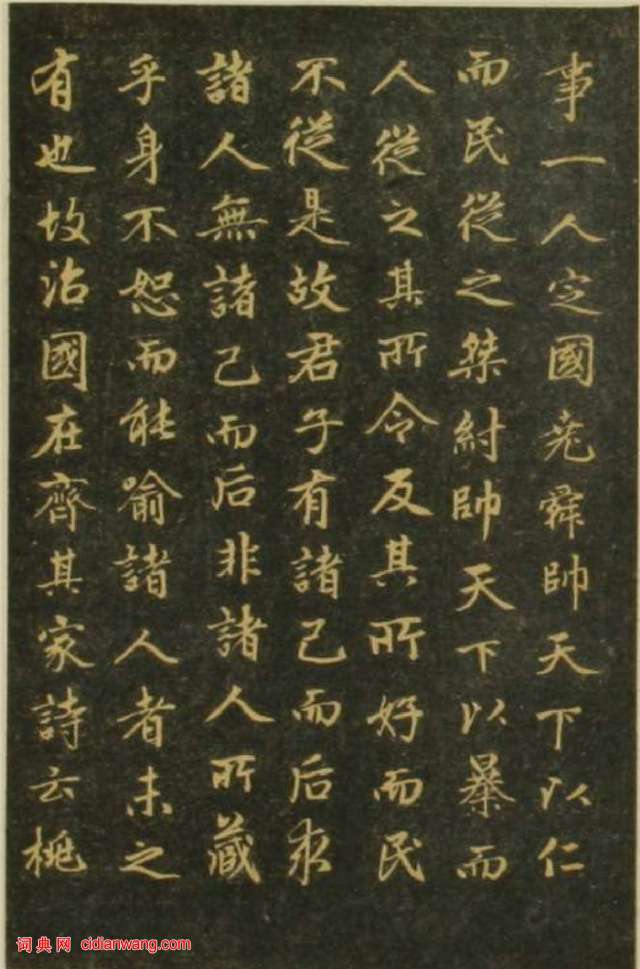 事一人定國堯舜帥天下以仁
而民從之桀紂帥天下以暴而
人從之其所令反其所好而民
不從是故君子有諸己而后求
諸人無諸己而后非諸人所藏
乎身不恕而能喻諸人者未之
有也故治國在齊其家詩云桃
词典网 cidianwang.com